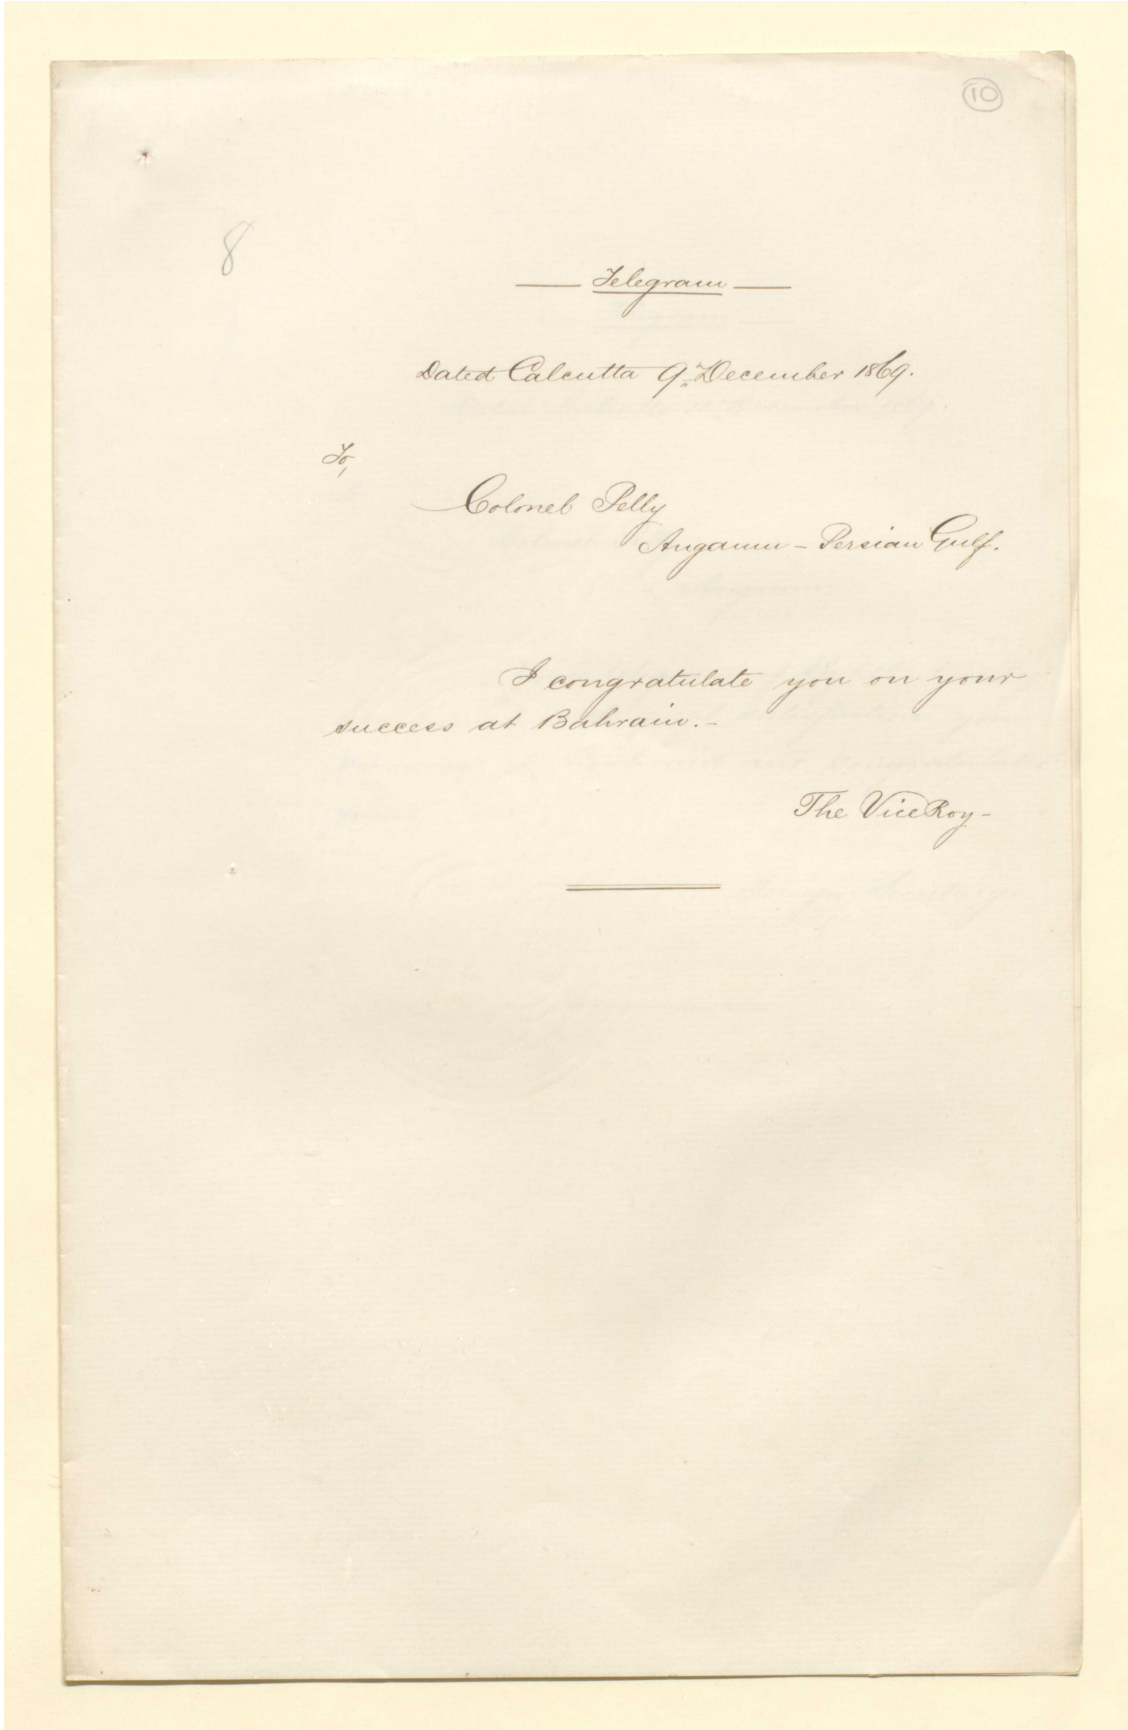 10
8
Telegram
Dated Calcutta 9 December 1869.
To,
Colonel Pelly
Angaum - Persian Gulf.
I congratulate you on your
success at Bahrain. -
The ViceRoy -